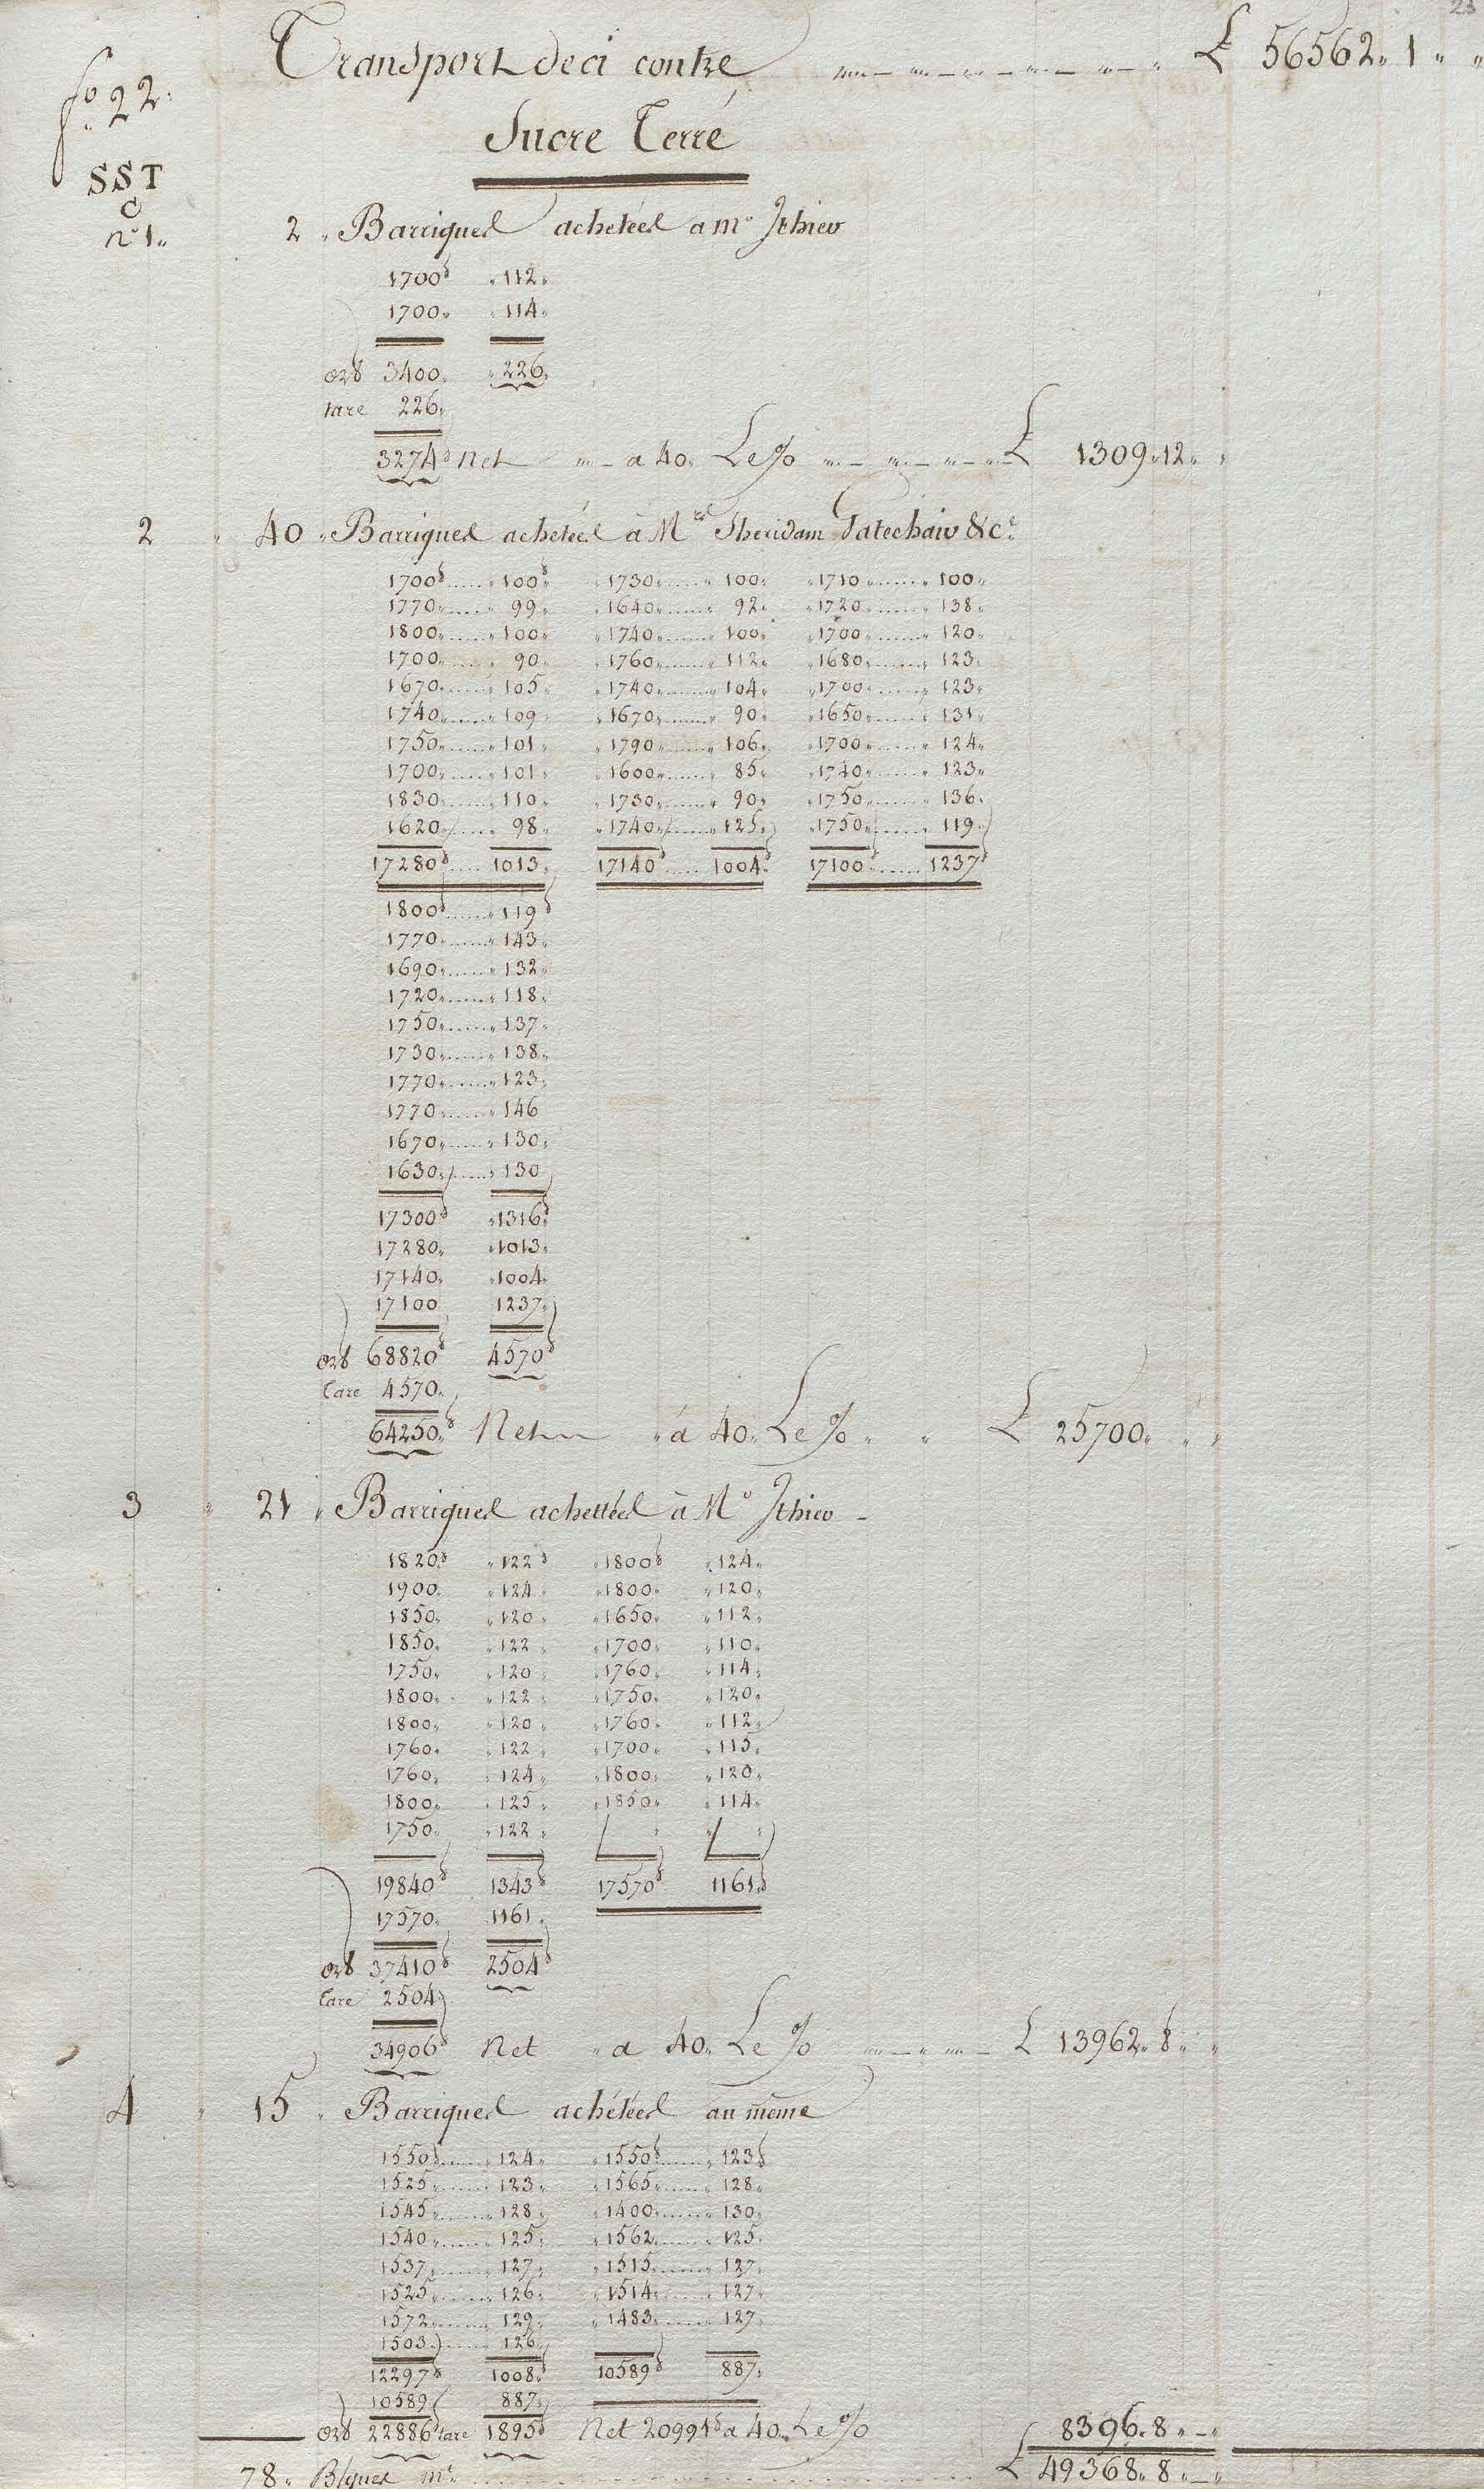 23
Transport de ci contre £ 56562 „ 1 „ „
fo 22.
Sucre Terré
SST
C
n° 1 „ 2 „ Barriques achetées a mr Ithier
1700 „ 112 „
1700 „ „ 114 „
3400 „ „ 226 „
tare 226 „
3274 Net a 40 „ Le % £ 1309 „ 12 „ „
2 „ 40 „ Barriques achetées à Mrs Sheridam Gatechair & Ce
1700 ...... „ 100 „ 1730 „ ...... „ 100 „ „ 1710 „ ...... „ 100 „
1770 „ ...... „ 99 „ „ 1640 „ ...... „ 92 „ „ 1720 „ ...... „ 138 „
1800 „ ...... „ 100 „ „ 1740 „ ...... „ 100 „ „ 1700 „ ...... „ 120 „
1700 „ ...... „ 90 „ „ 1760 „ ...... „ 112 „ „ 1680 „ ...... „ 123 „
1670 „ ...... „ 105 „ „ 1740 „ ...... „ 104 „ „ 1700 „ ...... „ 123 „
1740 „ ...... „ 109 „ „ 1670 „ ...... „ 90 „ „ 1650 „ ...... „ 131 „
1750 „ ...... „ 101 „ „ 1790 „ ...... „ 106 „ „ 1700 „ ...... „ 124 „
1700 „ ...... „ 101 „ „ 1600 „ ...... „ 85 „ „ 1740 „ ...... „ 123 „
1830 „ ...... „ 110 „ „ 1730 „ ...... „ 90 „ „ 1750 „ ...... „ 136 „
1620 „ ...... „ 98 „ „ 1740 „ ...... „ 125 „ „ 1750 „ ...... „ 119 „
17280 ..... 1013 „ 17140 ..... 1004 „ 17100 „ ...... 1237
1800 ...... „ 119
1770 „ ...... „ 143 „
1690 „ ...... „ 132 „
1720 „ ...... „ 118 „
1750 „ ...... „ 137 „
1730 „ ...... „ 138 „
1770 „ ...... „ 123 „
1770 „ ...... „ 146
1670 „ ...... „ 130 „
1630 „ ...... „ 130
17300 „ 1316
17280 „ „ 1013 „
17140 „ „ 1004 „
17100 1237 „
68820 4570
Tare 4570 „
64250 „ Net „ à 40 „ Le % „ „ £ 25700 „ „ „
3 „ 21 „ Barriques achettées à Mr Ithier -
1820 „ 122 „ 1800 „ 124 „
1900 „ „ 124 „ „ 1800 „ „ 120 „
1850 „ „ 120 „ „ 1650 „ „ 112 „
1850 „ „ 122 „ „ 1700 „ „ 110 „
1750 „ „ 120 „ „ 1760 „ „ 114 „
1800 „ „ 122 „ „ 1750 „ „ 120 „
1800 „ „ 120 „ „ 1760 „ „ 112 „
1760 „ „ 122 „ „ 1700 „ „ 115 „
1760 „ „ 124 „ „ 1800 „ „ 120 „
1800 „ „ 125 „ „ 1850 „ „ 114 „
1750 „ „ 122 „
19840 1343 17570 1161
17570 „ 1161 „
37410 2504
Tare 2504
34906 Net „ a 40 „ Le % £ 13962 „ 8 „ „
4 „ 15 „ Barriques achétées au même
1550 ...... „ 124 „ „ 1550 ...... „ 123
1525 „ ...... „ 123 „ „ 1565 „ ...... „ 128 „
1545 „ ...... „ 128 „ „ 1400 „ ...... „ 130 „
1540 „ ...... „ 125 „ „ 1562 ...... „ 125 „
1537 „ ...... „ 127 „ „ 1515 ...... „ 127 „
1525 „ ...... „ 126 „ „ 1514 „ ...... „ 127 „
1572 „ ...... „ 129 „ „ 1483 ...... „ 127
1503 „ ...... „ 126 „
12297 1008 10589 887 „
10589 887 „
22886 tare 1895 Net 20991 a 40 „ Le % 8396 „ 8 „ – „
78 „ Blques me £ 49368 „ 8 „ – „